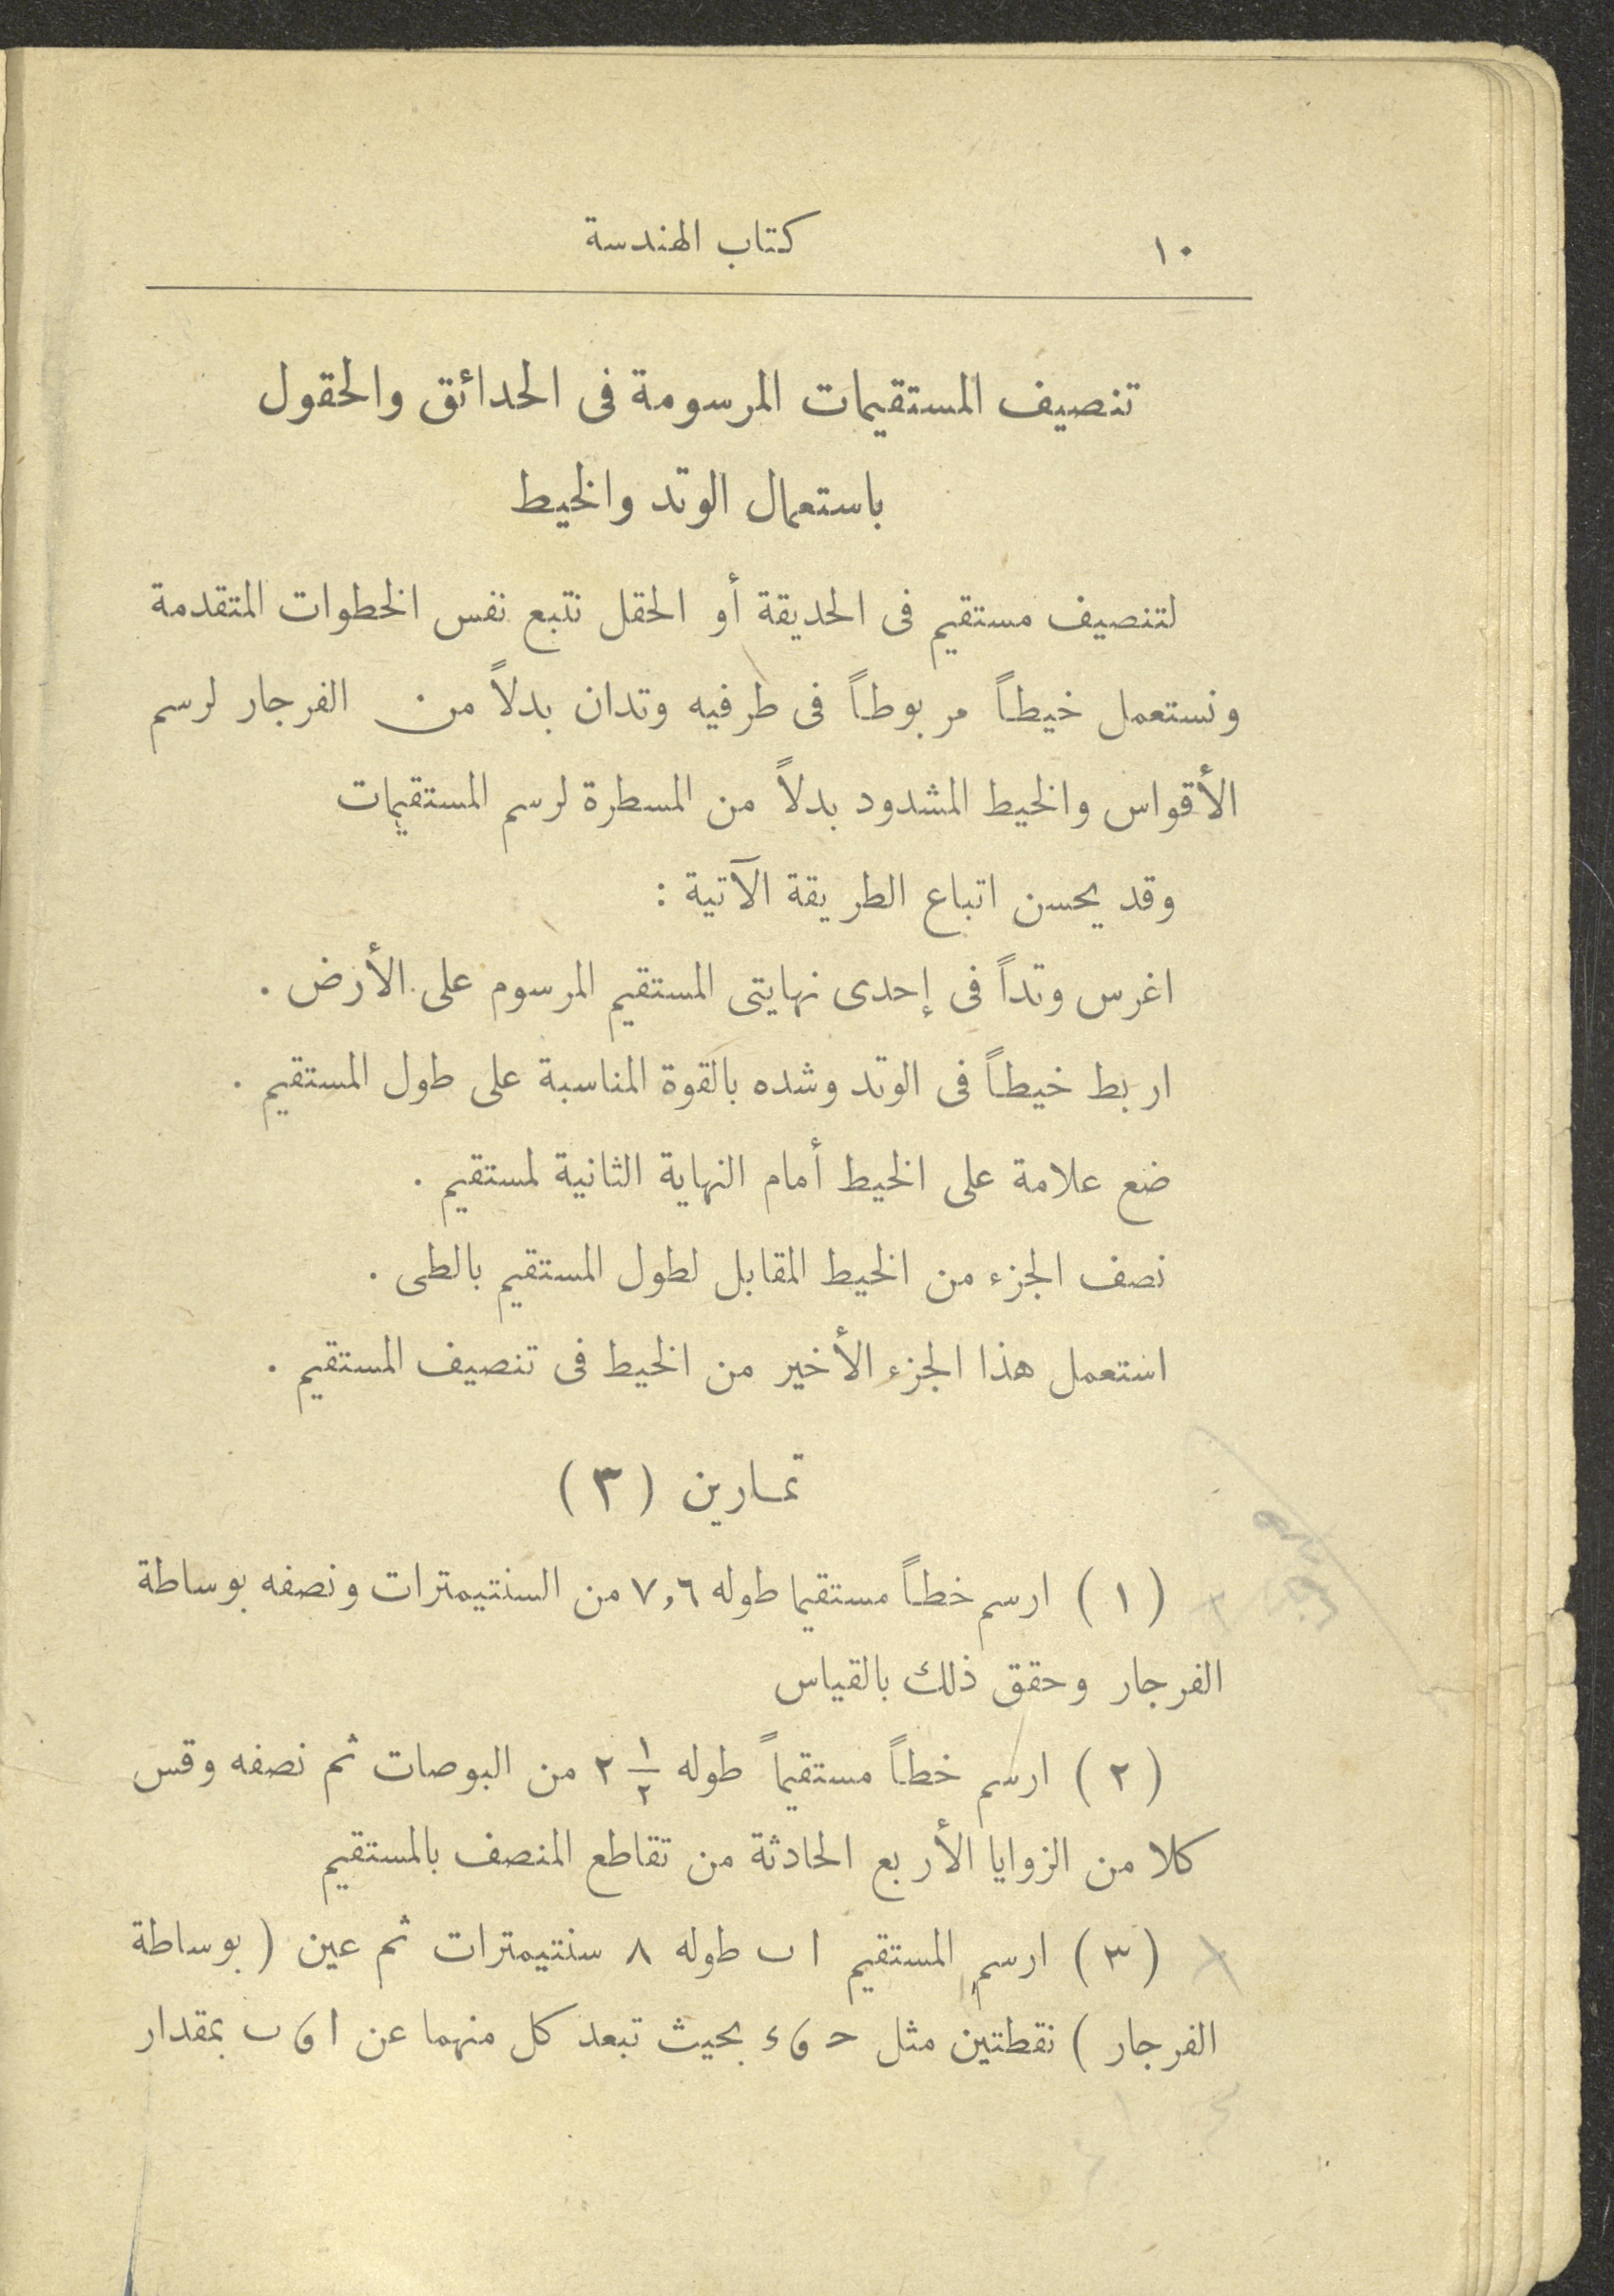 ١٠
كتاب الهندسة
تنصيف المستقيمات المرسومة فى الحدائق والحقول
باستعمال الوتد والخيط
لتنصيف مستقيم فى الحديقة أو الحقل نتبع نفس الخطوات المتقدمة
ونستعمل خيطاً مربوطاً فى طرفيه وتدان بدلاً من الفرجار لرسم
الأقواس والخيط المشدود بدلاً من المسطرة لرسم المستقيمات
وقد يحسن اتباع الطريقة الآتية :
اغرس وتداً فى إحدى نهايتى المستقيم المرسوم على الأرض .
اربط خيطاً فى الوتد وشده بالقوة المناسبة على طول المستقيم .
ضع علامة على الخيط أمام النهاية الثانية لمستقيم .
نصف الجزء من الخيط المقابل لطول المستقيم بالطى .
استعمل هذا الجزء الأخير من الخيط فى تنصيف المستقيم .
تمارين ( ٣ )
( ١ ) ارسم خطاً مستقيما طوله ٧,٦ من السنتيمترات ونصفه بوساطة
الفرجار وحقق ذلك بالقياس
( ٢ ) ارسم خطاً مستقيماً طوله ٢ ١/٢ من البوصات ثم نصفه وقس
كلا من الزوايا الأربع الحادثة من تقاطع المنصف بالمستقيم
( ٣ ) ارسم المستقيم ا ٮ طوله ٨ سنتيمترات ثم عين ( بوساطة
الفرجار ) نقطتين مثل حـ و ء بحيث تبعد كل منهما عن ا و ٮ بمقدار